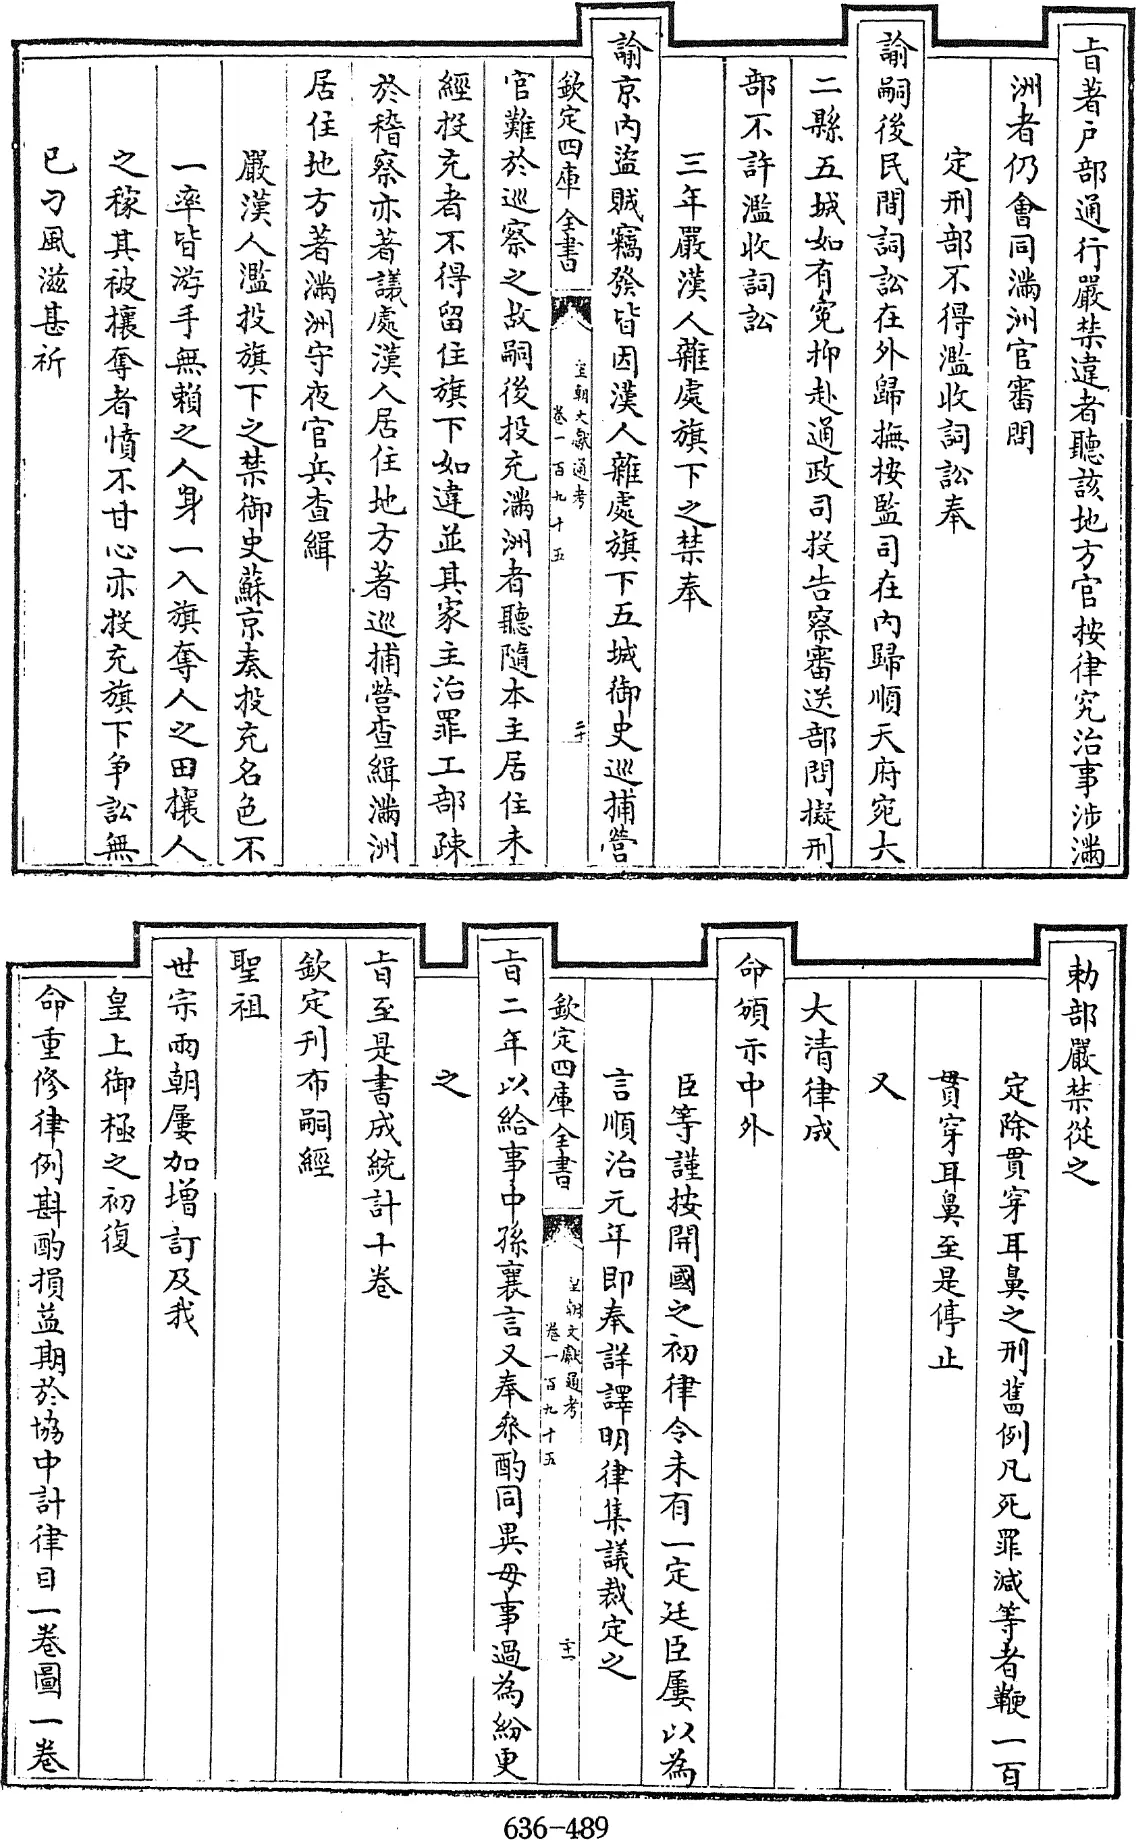 旨著户部通行嚴禁違者聽該地方官按律究治事涉滿
洲者仍會同滿洲官審問
定刑部不得濫收詞訟奉
諭嗣後民間詞訟在外歸撫按監司在内歸順天府宛大
二縣五城如有寃抑赴通政司投告察審送部問擬刑
部不許濫收詞訟
三年嚴漢人雜處旗下之禁奉
諭京内盜賊竊發皆因漢人雜處旗下五城御史巡捕營
欽定四庫全書
皇朝文獻通考
卷一百九十五
二十
官難於巡察之故嗣後投充滿洲者聽隨本主居住未
經投充者不得留住旗下如違並其家主治罪工部疎
於稽察亦著議處漢人居住地方著巡捕營查緝滿洲
居住地方著滿洲守夜官兵查緝
嚴漢人濫投旗下之禁御史蘇京奏投充名色不
一率皆游手無賴之人身一入旗奪人之田攘人
之稼其被攘奪者憤不甘心亦投充旗下争訟無
已刁風滋甚祈
勅部嚴禁從之
定除貫穿耳鼻之刑舊例凡死罪減等者鞭一百
貫穿耳鼻至是停止
又
大清律成
命頒示中外
臣等謹按開國之初律令未有一定廷臣屢以為
言順治元年即奉詳譯明律集議裁定之
欽定四庫全書
皇朝文獻通考
卷一百九十五
二十一
旨二年以給事中孫襄言又奉叅酌同異毋事過為紛更
之
旨至是書成統計十卷
欽定刋布嗣經
聖祖
世宗兩朝屢加增訂及我
皇上御極之初復
命重修律例斟酌損益期於協中計律目一卷圖一卷
636-489